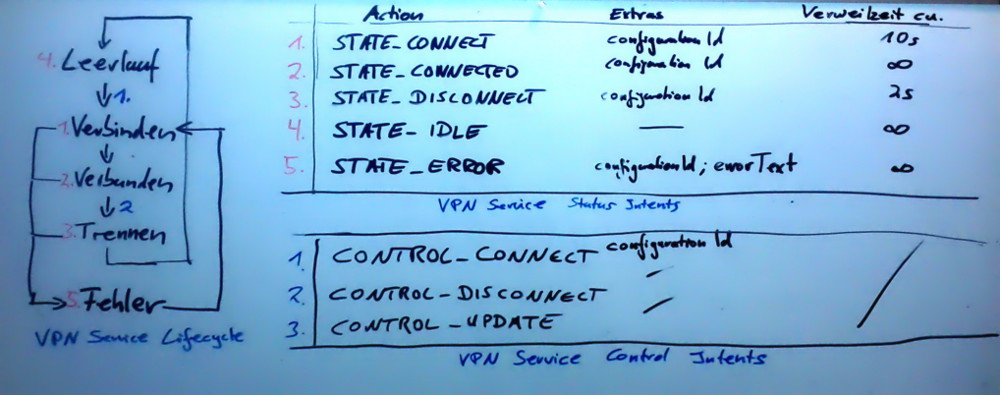 4. Leerlauf
1.
1. Verbinden
2. Verbunden
2
3. Trennen
5. Fehler
VPN Service Lifecycle
Action Extras Verweilzeit ca.
1. STATE_CONNECT configuration Id 10s
2. STATE_CONNECTED configuration Id ∞
3. STATE_DISCONNECT configuration Id 2s
4. STATE_IDLE — ∞
5. STATE_ERROR configurationId; errorText ∞
VPN Service Status Intents
1. CONTROL_CONNECT configuration Id
2. CONTROL_DISCONNECT
3. CONTROL_UPDATE
VPN Service Control Intents